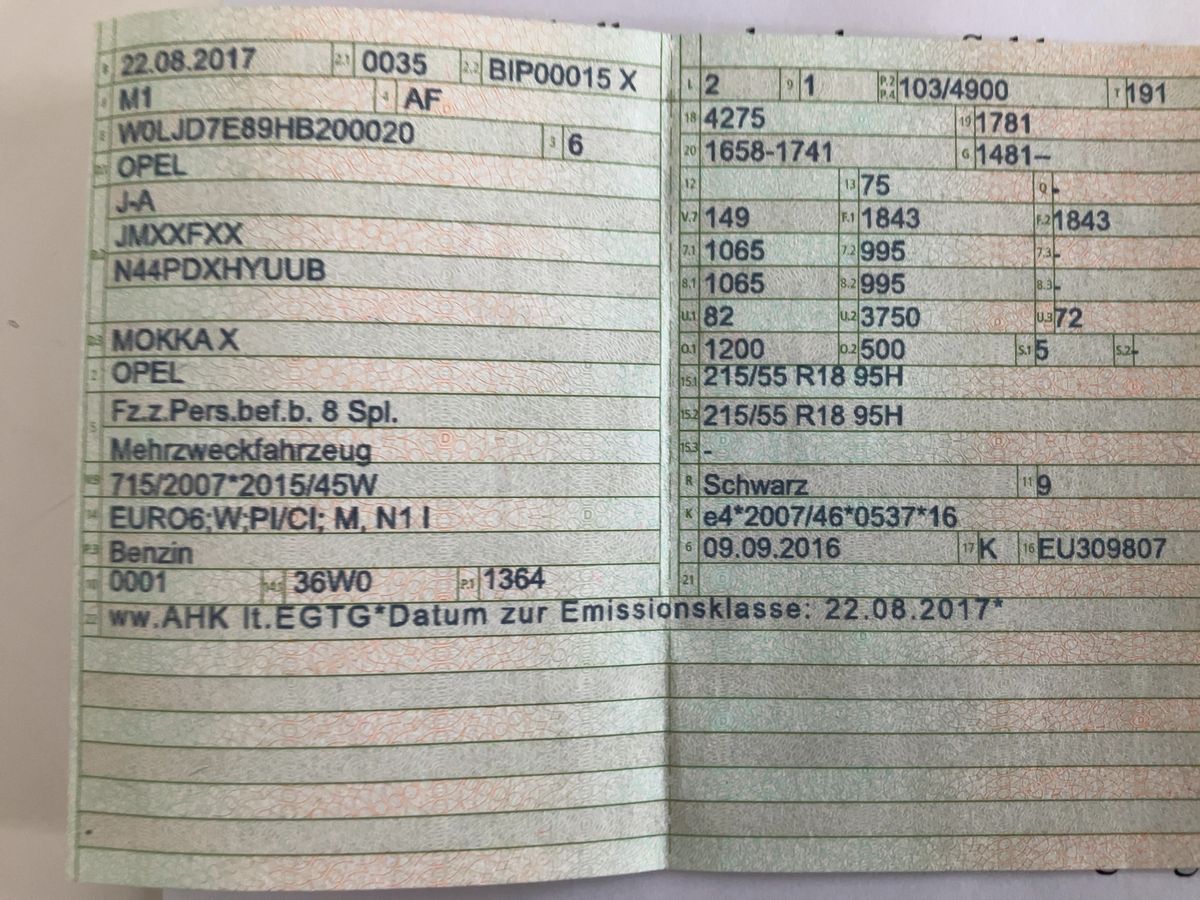 B 22.08.2017 2.1 0035 2.2 BIP00015 X
J M1 4 AF
E W0LJD7E89HB200020 3 6
D.1 OPEL
J-A
D.2 JMXXFXX
N44PDXHYUUB
D.3 MOKKA X
2 OPEL
5 Fz.z.Pers.bef.b. 8 Spl.
Mehrzweckfahrzeug
V.9 715/2007*2015/45W
14 EURO6;W;PI/CI; M, N1 I
P.3 Benzin
10 0001 14.1 36W0 P.1 1364
L 2 9 1 P.2 P.4 103/4900 T 191
18 4275 19 1781
20 1658-1741 G 1481–
12 13 75 Q -
V.7 149 F.1 1843 F.2 1843
7.1 1065 7.2 995 7.3 -
8.1 1065 8.2 995 8.3 -
U.1 82 U.2 3750 U.3 72
O.1 1200 O.2 500 S.1 5 S.2 -
15.1 215/55 R18 95H
15.2 215/55 R18 95H
15.3 -
R Schwarz 11 9
K e4*2007/46*0537*16
6 09.09.2016 17 K 16 EU309807
21
22 ww.AHK lt.EGTG*Datum zur Emissionsklasse: 22.08.2017*